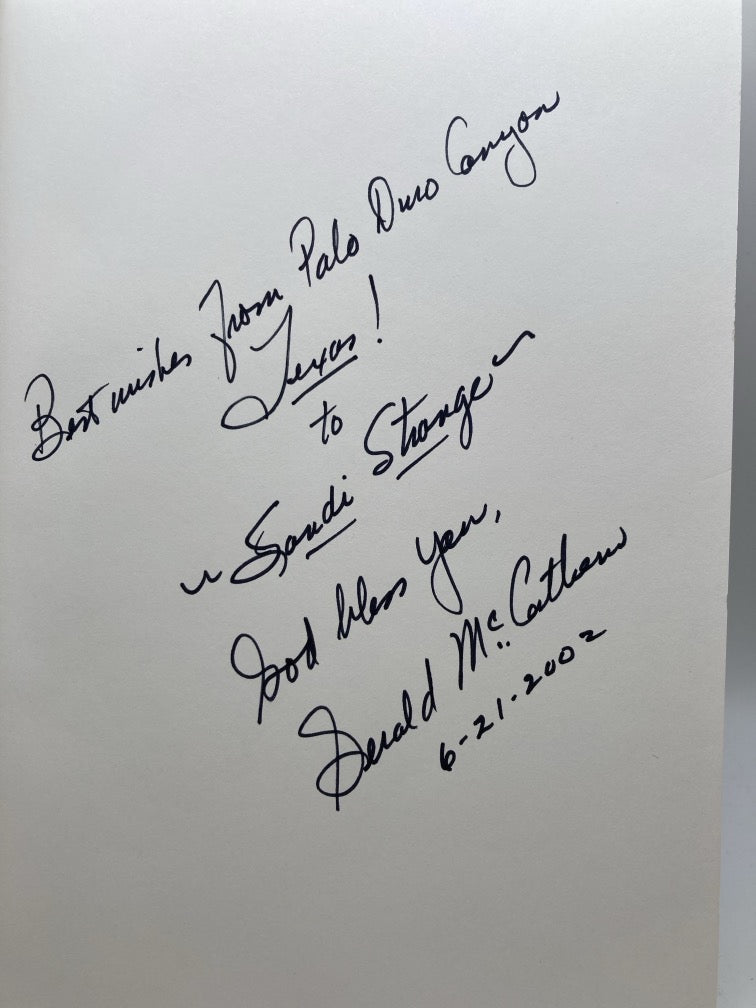 Best wishes from Palo Duro Canyon
Texas!
to
~ Sandi Strange ~
God bless you,
Gerald McCathern
6-21-2002